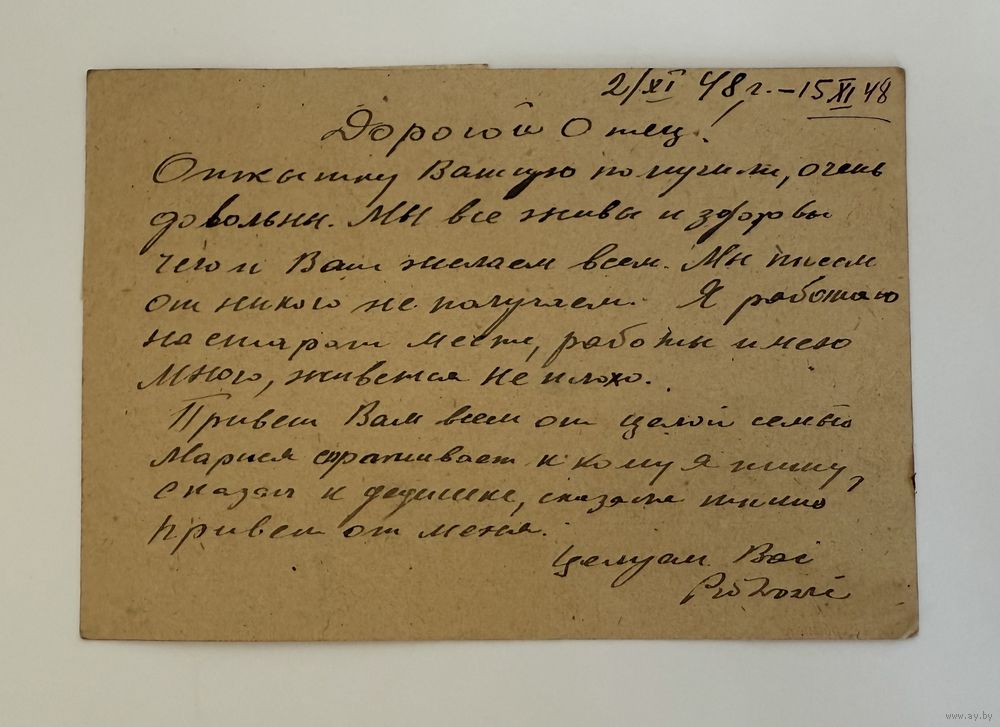 2/XI 48 г. – 15 XI 48
Дорогой Отец!
Открытку Вашую получили, очень
довольны. Мы все живы и здоровы
чего и Вам желаем всем. Мы писем
от никого не получаем. Я работаю
на старом месте, работы имею
много, живется не плохо.
Привет Вам всем от целой семьи
Марися спрашивает к кому я пишу,
сказал к дедушке, сказала пишы
привет от меня.
Целуем Вас
www.ay.by